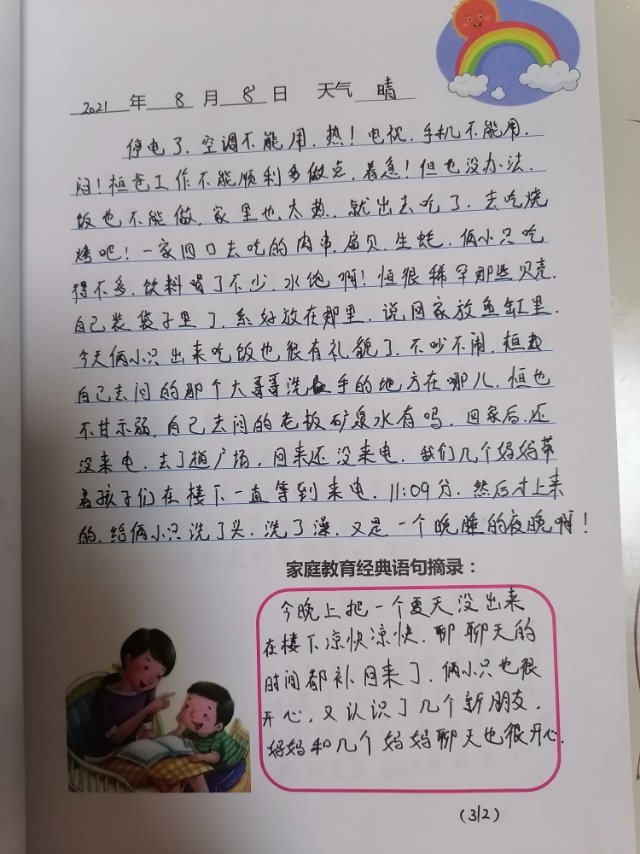 2021 年 8 月 8 日 天气 晴
停电了，空调不能用，热！电视，手机不能用，
闷！桓爸工作不能顺利多做点，着急！但也没办法，
饭也不能做，家里也太热，就出去吃了，去吃烧
烤吧！一家四口去吃的肉串，扇贝，生蚝，俩小只吃
得不多，饮料喝了不少，水饱啊！恒很稀罕那些贝壳，
自己装袋子里了，系好放在那里，说回家放鱼缸里。
今天俩小只出来吃饭也很有礼貌了，不吵不闹，桓
自己去问的那个大哥哥洗手的地方在哪儿，恒也
不甘示弱，自己去问的老板矿泉水有吗，回家后，还
没来电，去了趟广场，回来还没来电，我们几个妈妈带
着孩子们在楼下一直等到来电，11:09分，然后才上来
的，给俩小只洗了头，洗了澡，又是一个晚睡的夜晚啊！
家庭教育经典语句摘录：
今晚上把一个夏天没出来
在楼下凉快凉快，聊聊天的
时间都补回来了，俩小只也很
开心，又认识了几个新朋友，
妈妈和几个妈妈聊天也很开心.
(312)